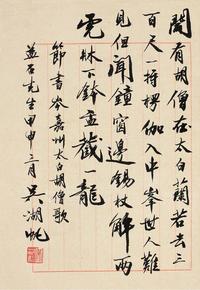 聞有胡僧在太白蘭若去三
百尺一持楞伽入中峯世人難
見但聞鐘窗邊錫杖解兩
虎牀下鉢盂截一龍
節書岑嘉州太白胡僧歌
益石先生甲申三月吳湖帆